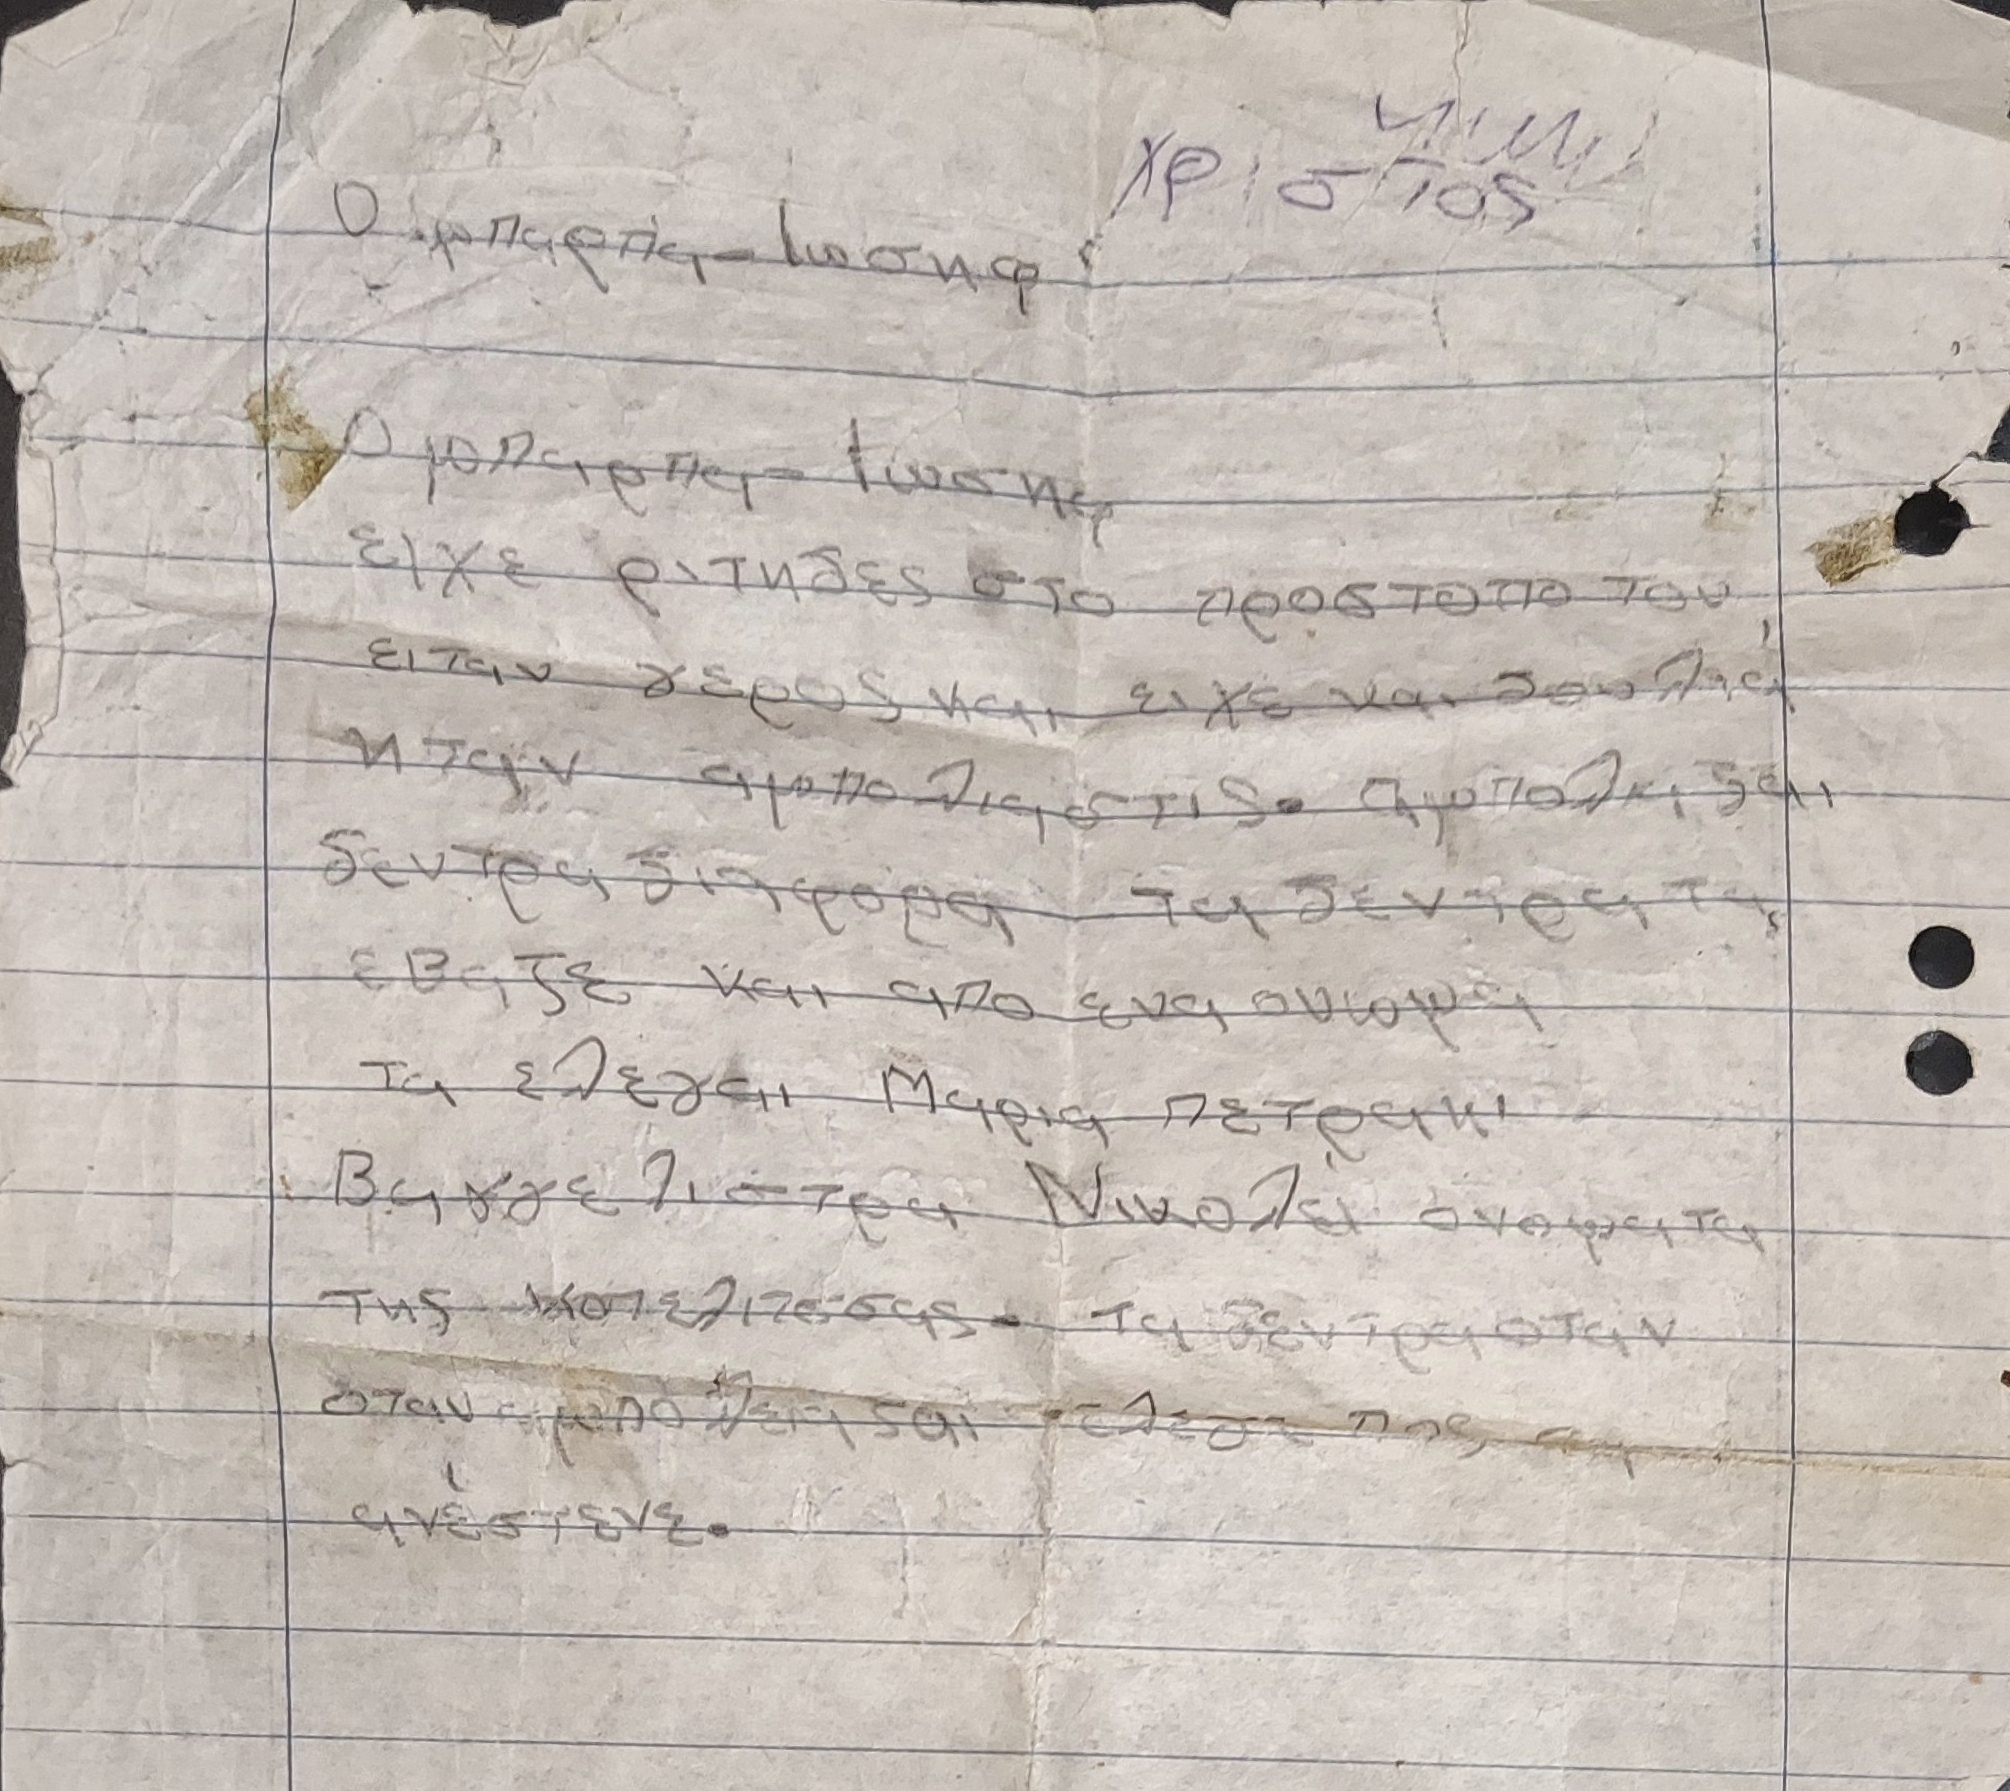 Χριστος
Ο μπαρπα-Ιωσηφ
Ο μπαρπα-Ιωσηφ
ειχε ριτηδες στο προστοπο του
ειταν γερος και ειχε και δουλια
ηταν αμπολιαστις. αμπολιαζαι
δεντρα διαφορα τα δεντρα τα
εβαζε και απο ενα ονομα
τα ελεγαι Μαρια πετρακι
Βαγγελιστρα Νικολα ονοματα
της κοπελιτσας. τα δεντρα οταν
οταν ελεγε πος
ανέστενε.